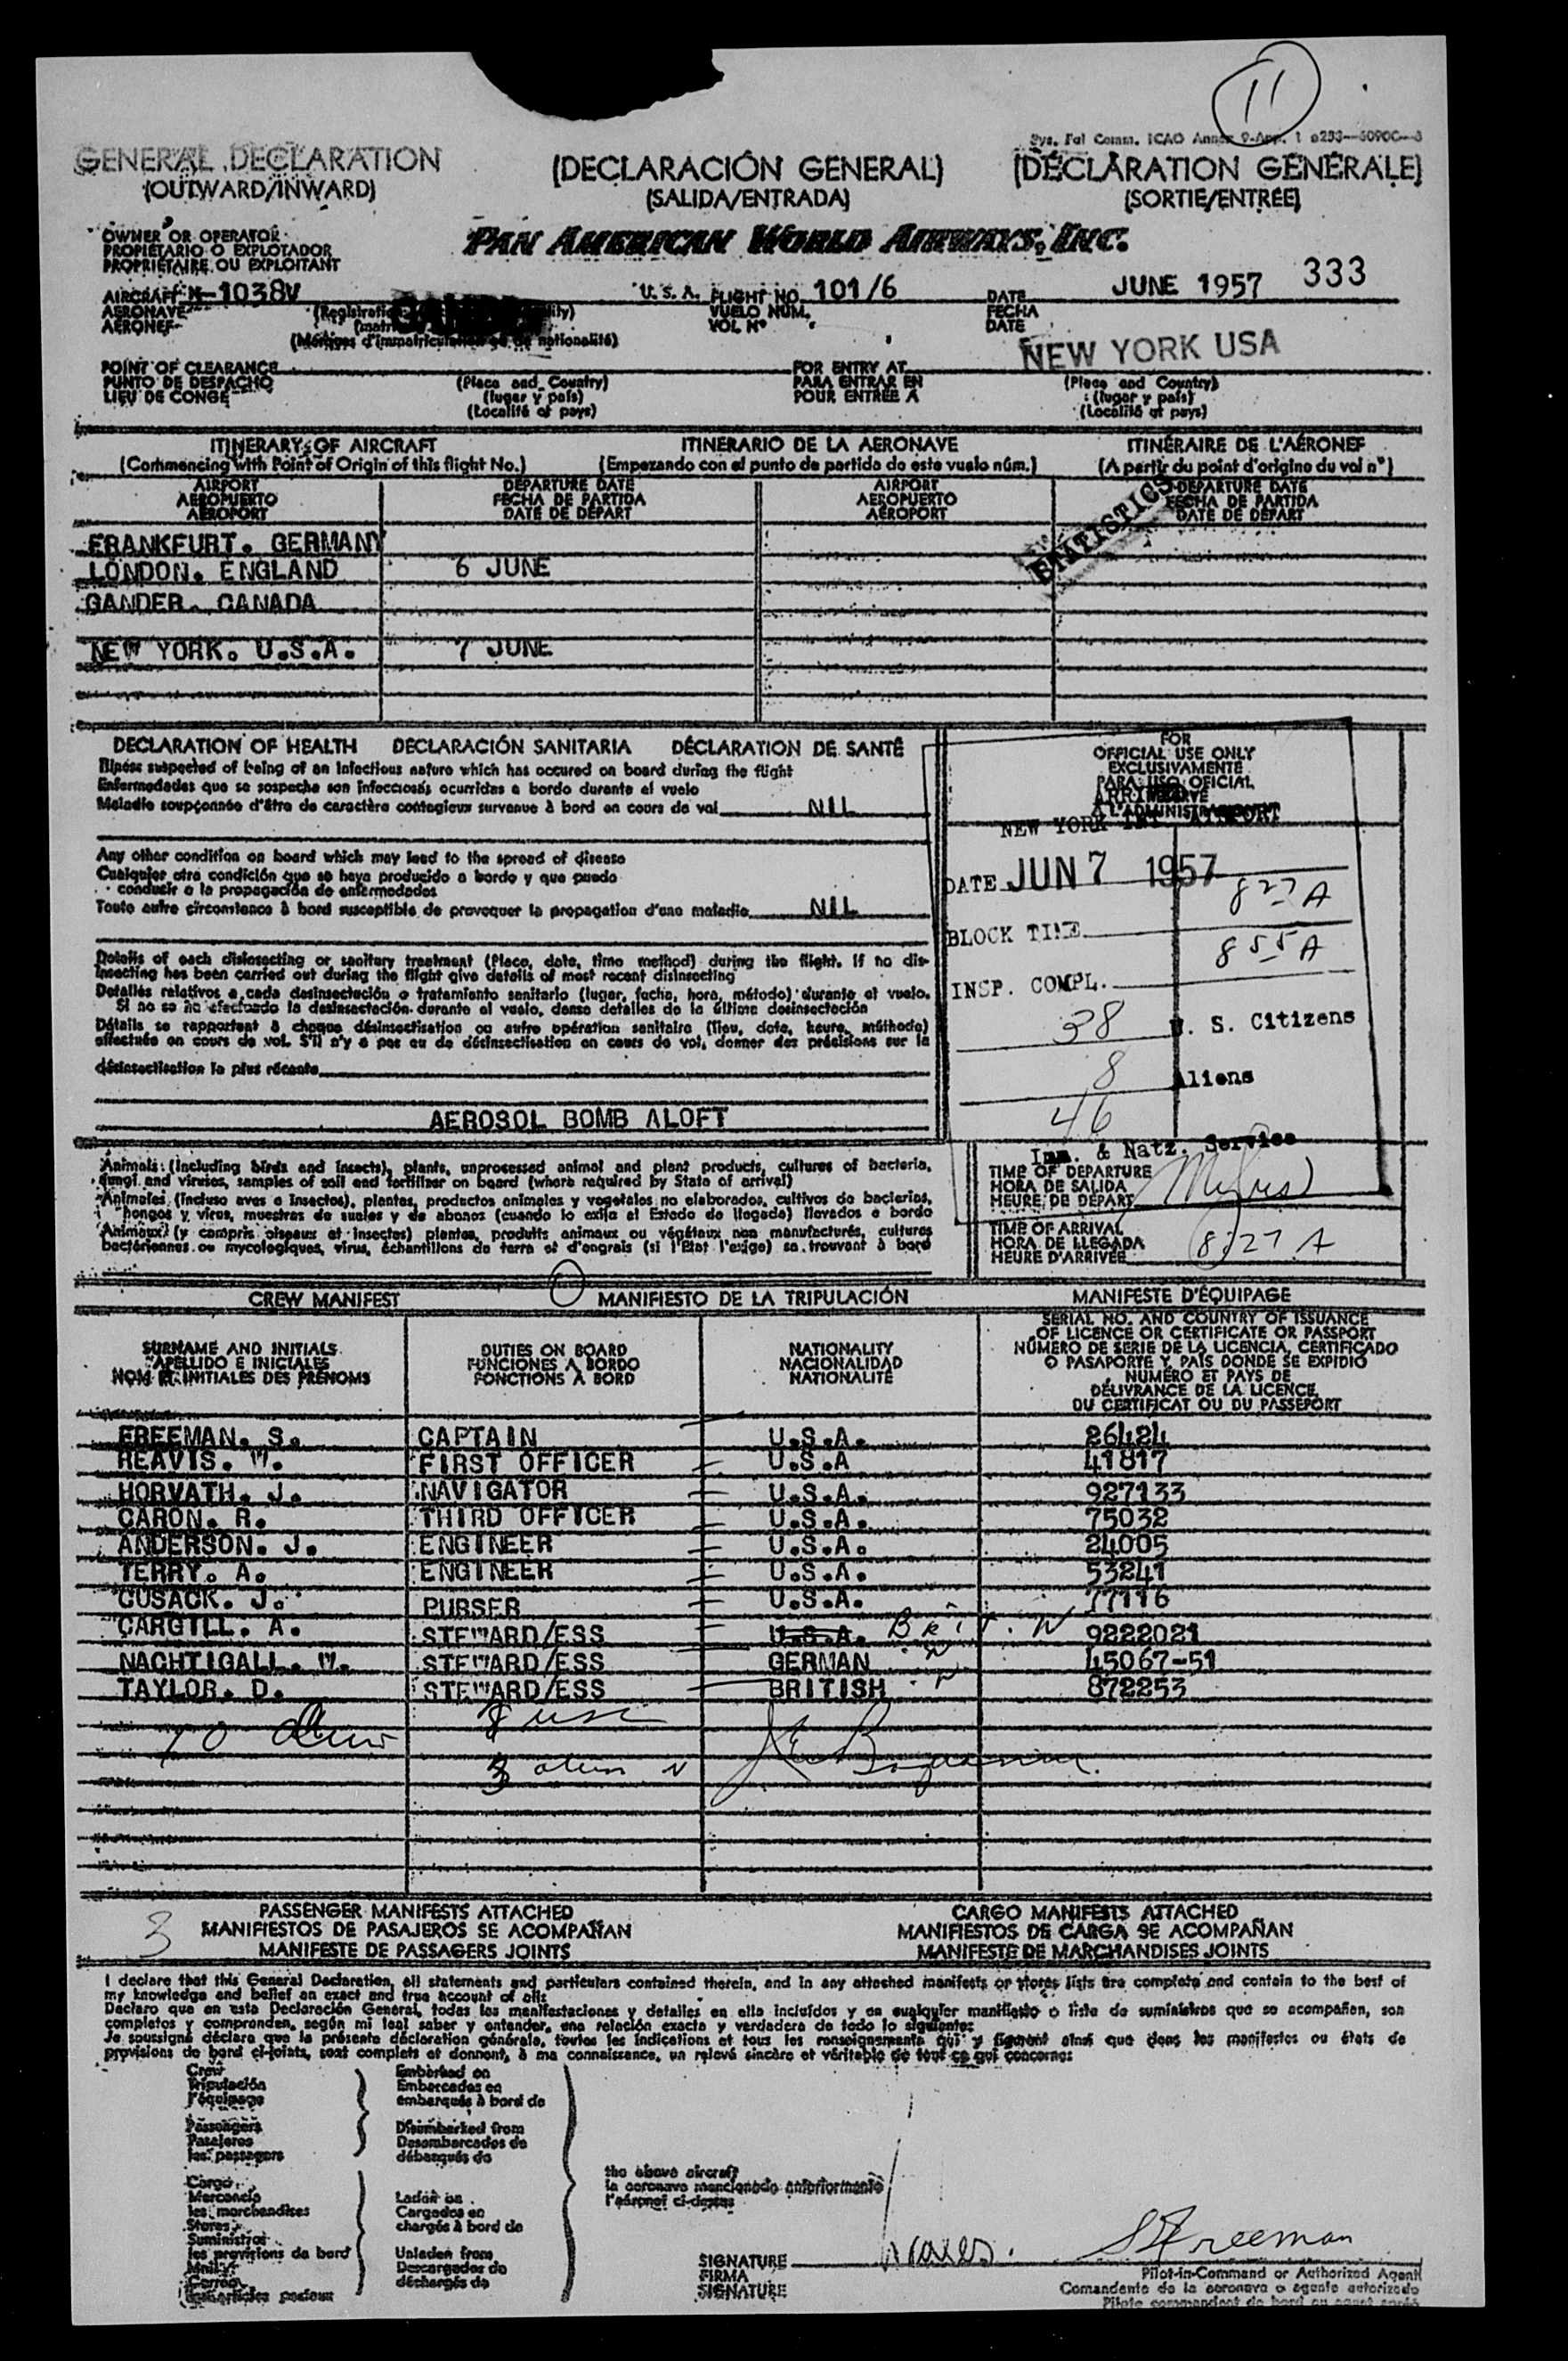 11
Sys. Fal Comm. ICAO Annex 9-App. 1
GENERAL DECLARATION
(OUTWARD/INWARD)
(DECLARACIÓN GENERAL)
(SALIDA/ENTRADA)
(DÉCLARATION GÉNÉRALE)
(SORTIE/ENTRÉE)
OWNER OR OPERATOR
PROPIETARIO O EXPLOTADOR
PROPRIÉTAIRE OU EXPLOITANT
PAN AMERICAN WORLD AIRWAYS, INC.
AIRCRAFT N-1038V
AERONAVE
AÉRONEF
U.S.A.
FLIGHT NO. 101/6
VUELO NÚM.
VOL Nº
DATE JUNE 1957 333
FECHA
DATE
POINT OF CLEARANCE
PUNTO DE DESPACHO
LIEU DE CONGÉ
(Place and Country)
(lugar y país)
(Localité et pays)
FOR ENTRY AT
PARA ENTRAR EN
POUR ENTRÉE A
NEW YORK USA
(Place and Country)
(lugar y país)
(Localité et pays)
ITINERARY OF AIRCRAFT ITINERARIO DE LA AERONAVE ITINÉRAIRE DE L'AÉRONEF
(Commencing with Point of Origin of this flight No.) (Empezando con el punto de partida de este vuelo núm.) (A partir du point d'origine du vol nº)
AIRPORT DEPARTURE DATE AIRPORT DEPARTURE DATE
AEROPUERTO FECHA DE PARTIDA AEROPUERTO FECHA DE PARTIDA
AÉROPORT DATE DE DÉPART AÉROPORT DATE DE DÉPART
STATISTICS
FRANKFURT. GERMANY
LONDON. ENGLAND 6 JUNE
GANDER. CANADA
NEW YORK. U.S.A. 7 JUNE
DECLARATION OF HEALTH DECLARACIÓN SANITARIA DÉCLARATION DE SANTÉ
Illness suspected of being of an infectious nature which has occured on board during the flight
Enfermedades que se sospecha son infecciosas ocurridas a bordo durante el vuelo
Maladie soupçonnée d'être de caractère contagieux survenue à bord en cours de vol NIL
Any other condition on board which may lead to the spread of disease
Cualquier otra condición que se haya producido a bordo y que pueda
conducir a la propagación de enfermedades
Toute autre circonstance à bord susceptible de provoquer la propagation d'une maladie NIL
Details of each disinsecting or sanitary treatment (Place, date, time method) during the flight. If no dis-
insecting has been carried out during the flight give details of most recent disinsecting
Detalles relativos a cada desinsectación o tratamiento sanitario (lugar, fecha, hora, método) durante el vuelo.
Si no se ha efectuado la desinsectación durante el vuelo, dense detalles de la última desinsectación
Détails se rapportant à chaque désinsectisation ou autre opération sanitaire (lieu, date, heure, méthode)
effectuée en cours de vol. S'il n'y a pas eu de désinsectisation en cours de vol, donner des précisions sur la
désinsectisation la plus récente
AEROSOL BOMB ALOFT
FOR
OFFICIAL USE ONLY
EXCLUSIVAMENTE
PARA USO OFICIAL
A L'ADMINISTRATION
NEW YORK INT AIRPORT
DATE JUN 7 1957
827 A
BLOCK TIME
855 A
INSP. COMPL.
38 U. S. Citizens
8 Aliens
46
Imm. & Natz. Service
Animals: (including birds and insects), plants, unprocessed animal and plant products, cultures of bacteria,
fungi and viruses, samples of soil and fertilizer on board (where required by State of arrival)
Animales (incluso aves e insectos), plantas, productos animales y vegetales no elaborados, cultivos de bacterias,
hongos y virus, muestras de suelos y de abonos (cuando lo exija el Estado de llegada) llevados a bordo
Animaux (y compris oiseaux et insectes) plantes, produits animaux ou végétaux non manufacturés, cultures
bactériennes ou mycologiques, virus, échantillons de terre et d'engrais (si l'Etat l'exige) se trouvant à bord
TIME OF DEPARTURE
HORA DE SALIDA
HEURE DE DÉPART
TIME OF ARRIVAL
HORA DE LLEGADA
HEURE D'ARRIVÉE 8/27 A
CREW MANIFEST MANIFIESTO DE LA TRIPULACIÓN MANIFESTE D'ÉQUIPAGE
SURNAME AND INITIALS
APELLIDO E INICIALES
NOM ET INITIALES DES PRÉNOMS
DUTIES ON BOARD
FUNCIONES A BORDO
FONCTIONS À BORD
NATIONALITY
NACIONALIDAD
NATIONALITÉ
SERIAL NO. AND COUNTRY OF ISSUANCE
OF LICENCE OR CERTIFICATE OR PASSPORT
NÚMERO DE SERIE DE LA LICENCIA, CERTIFICADO
O PASAPORTE Y PAÍS DONDE SE EXPIDIÓ
NUMÉRO ET PAYS DE
DÉLIVRANCE DE LA LICENCE,
DU CERTIFICAT OU DU PASSEPORT
FREEMAN. S. CAPTAIN U.S.A. 26424
REAVIS. W. FIRST OFFICER U.S.A 41817
HORVATH. J. NAVIGATOR U.S.A. 927133
CARON. R. THIRD OFFICER U.S.A. 75032
ANDERSON. J. ENGINEER U.S.A. 24005
TERRY. A. ENGINEER U.S.A. 53241
CUSACK. J. PURSER U.S.A. 77116
CARGILL. A. STEWARD/ESS U.S.A. BRIT. N 9222021
NACHTIGALL. W. STEWARD/ESS GERMAN N 45067-51
TAYLOR. D. STEWARD/ESS BRITISH N 872253
10
3
3
PASSENGER MANIFESTS ATTACHED
MANIFIESTOS DE PASAJEROS SE ACOMPAÑAN
MANIFESTE DE PASSAGERS JOINTS
CARGO MANIFESTS ATTACHED
MANIFIESTOS DE CARGA SE ACOMPAÑAN
MANIFESTE DE MARCHANDISES JOINTS
I declare that this General Declaration, all statements and particulars contained therein, and in any attached manifests or stores lists are complete and contain to the best of
my knowledge and belief an exact and true account of all:
Declaro que en esta Declaración General, todas las manifestaciones y detalles en ella incluídos y en cualquier manifiesto o lista de suministros que se acompañen, son
completos y comprenden, según mi leal saber y entender, una relación exacta y verdadera de todo lo siguiente:
Je soussigné déclare que la présente déclaration générale, toutes les indications et tous les renseignements qui y figurent ainsi que dans les manifestes ou états de
provisions de bord ci-joints, sont complets et donnent, à ma connaissance, un relevé sincère et véritable de tout ce qui concerne:
Crew
Tripulación
l'équipage
Passengers
Pasajeros
les passagers
Cargo
Mercancía
les marchandises
Stores
Suministros
les provisions de bord
Mail y
Correo
Embarked on
Embarcados en
embarqués à bord de
Disembarked from
Desembarcados de
débarqués de
Laden on
Cargados en
chargés à bord de
Unladen from
Descargados de
déchargés de
the above aircraft
la aeronave mencionada anteriormente
l'aéronef ci-dessus
SIGNATURE
FIRMA
SIGNATURE
S Freeman
Pilot-in-Command or Authorized Agent
Comandante de la aeronave o agente autorizado